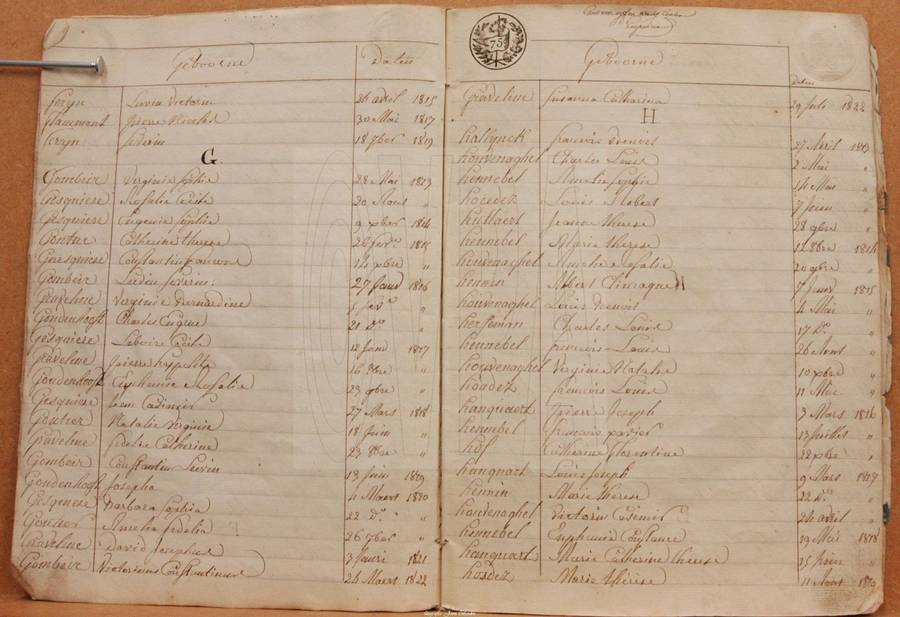 Geboorne Daten
feryn Livia Victorin 26 avril 1815
flaumont pierre Nicolas 30 Mai 1817
feryn Severin 18 7ber 1819
G.
Gombeir Virginie Sophie 28 Mai 1813
Gesquiere Rosalie Cecile 20 Aout "
Gesquiere Eugenie Sophie 9 xber 1814
Goutier Catherine therese 26 1815
Guesquiere Constantin francois 14 xbre "
Gombeir Ludin Severin 27 Janv 1816
Graveline Virginie Bernardine "
Goudenhooft Charles Eugene 21 do "
Gesquiere Cecile 12 Janv 1817
Graveline pierre hypolite 16 8bre "
Goudenhooft Euphemie Rosalie 23 9bre "
Gesquiere Leon Casimir 27 Mars 1818
Goutier Natalie Virginie 18 Juin "
Graveline fidelie Catherine 23 8bre "
Gombeir Constantin Lievin 13 Juin 1819
Goudenhooft Josepha 4 Maert 1820
Gesquiere Barbara Sophia 22 do "
Goutier Amelia fidelia 26 7ber "
Graveline David Josephus 3 1821
Gombeir Victorinus Constantinus 26 Maert 1822
75
Geboorne Daten
Graveline Susanna Catharina 29 Juli 1822
H
hallynck francois Denois 27 Avril 1813
houvenaghel Charles Louis 2 Mai "
hennebel Amelie Sophie 14 Mai "
hocedez Louis Albert 7 Juin "
huttaert Jeanne therese 28 9bre "
hennebel Marie therese 12 8bre 1814
houvenaeghel Amelie Rosalie 20 9bre "
hennin Albert 7 Janv 1815
houvenaghel Louis Denois 4 Mai "
herseman Charles Louis 17 do "
hennebel francois Louis 26 Aout "
houvenaghel Virginie Natalie 10 xbre "
houdez francois Louis 11 "
hanquaert pierre Joseph 3 Mars 1816
hennebel francois xavier 13 Juillet "
hof Catherine florentine 22 xbre "
hanquart Louis Joseph 9 Mars 1817
hennin Marie therese 22 do "
houvenaghel Victoria Casimir 24 avril "
hennebel Euphemie Constance 19 Mai 1818
hanquart Marie Catherine therese 25 Juin "
houdez Marie therese 11 Aout 1819